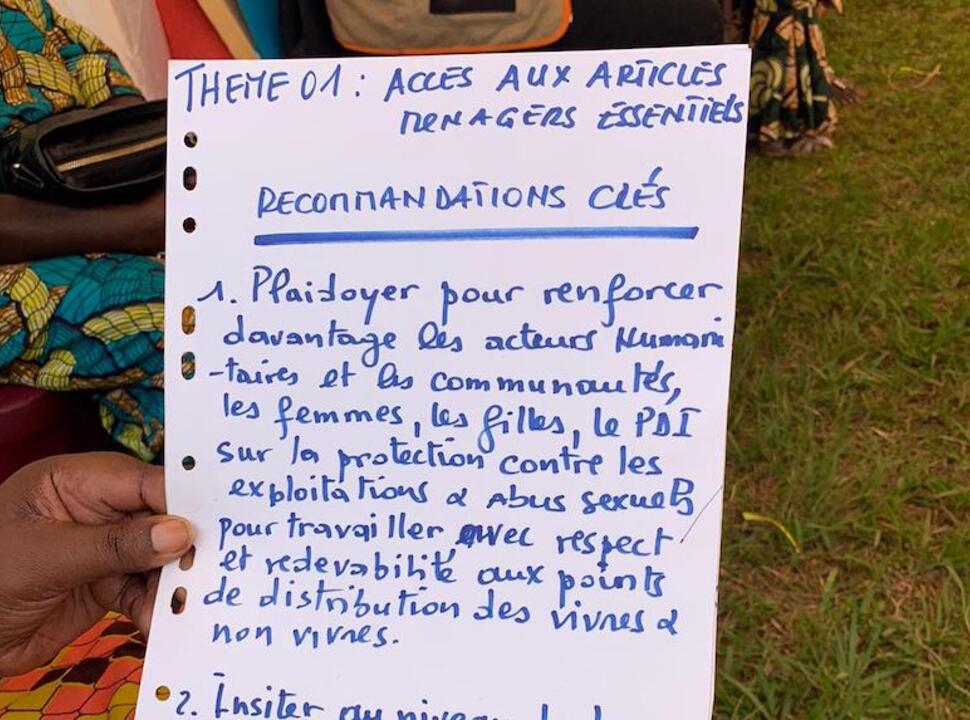 THEME 01 : ACCES AUX ARTICLES
MENAGERS ESSENTIELS
RECOMMANDATIONS CLÉS
1. Plaidoyer pour renforcer
davantage les acteurs Humani
-taires et les communautés,
les femmes, les filles, le PDI
sur la protection contre les
exploitations & Abus sexuels
pour travailler avec respect
et redevabilité aux points
de distribution des vivres &
non vivres.
2. Insiter au niveau